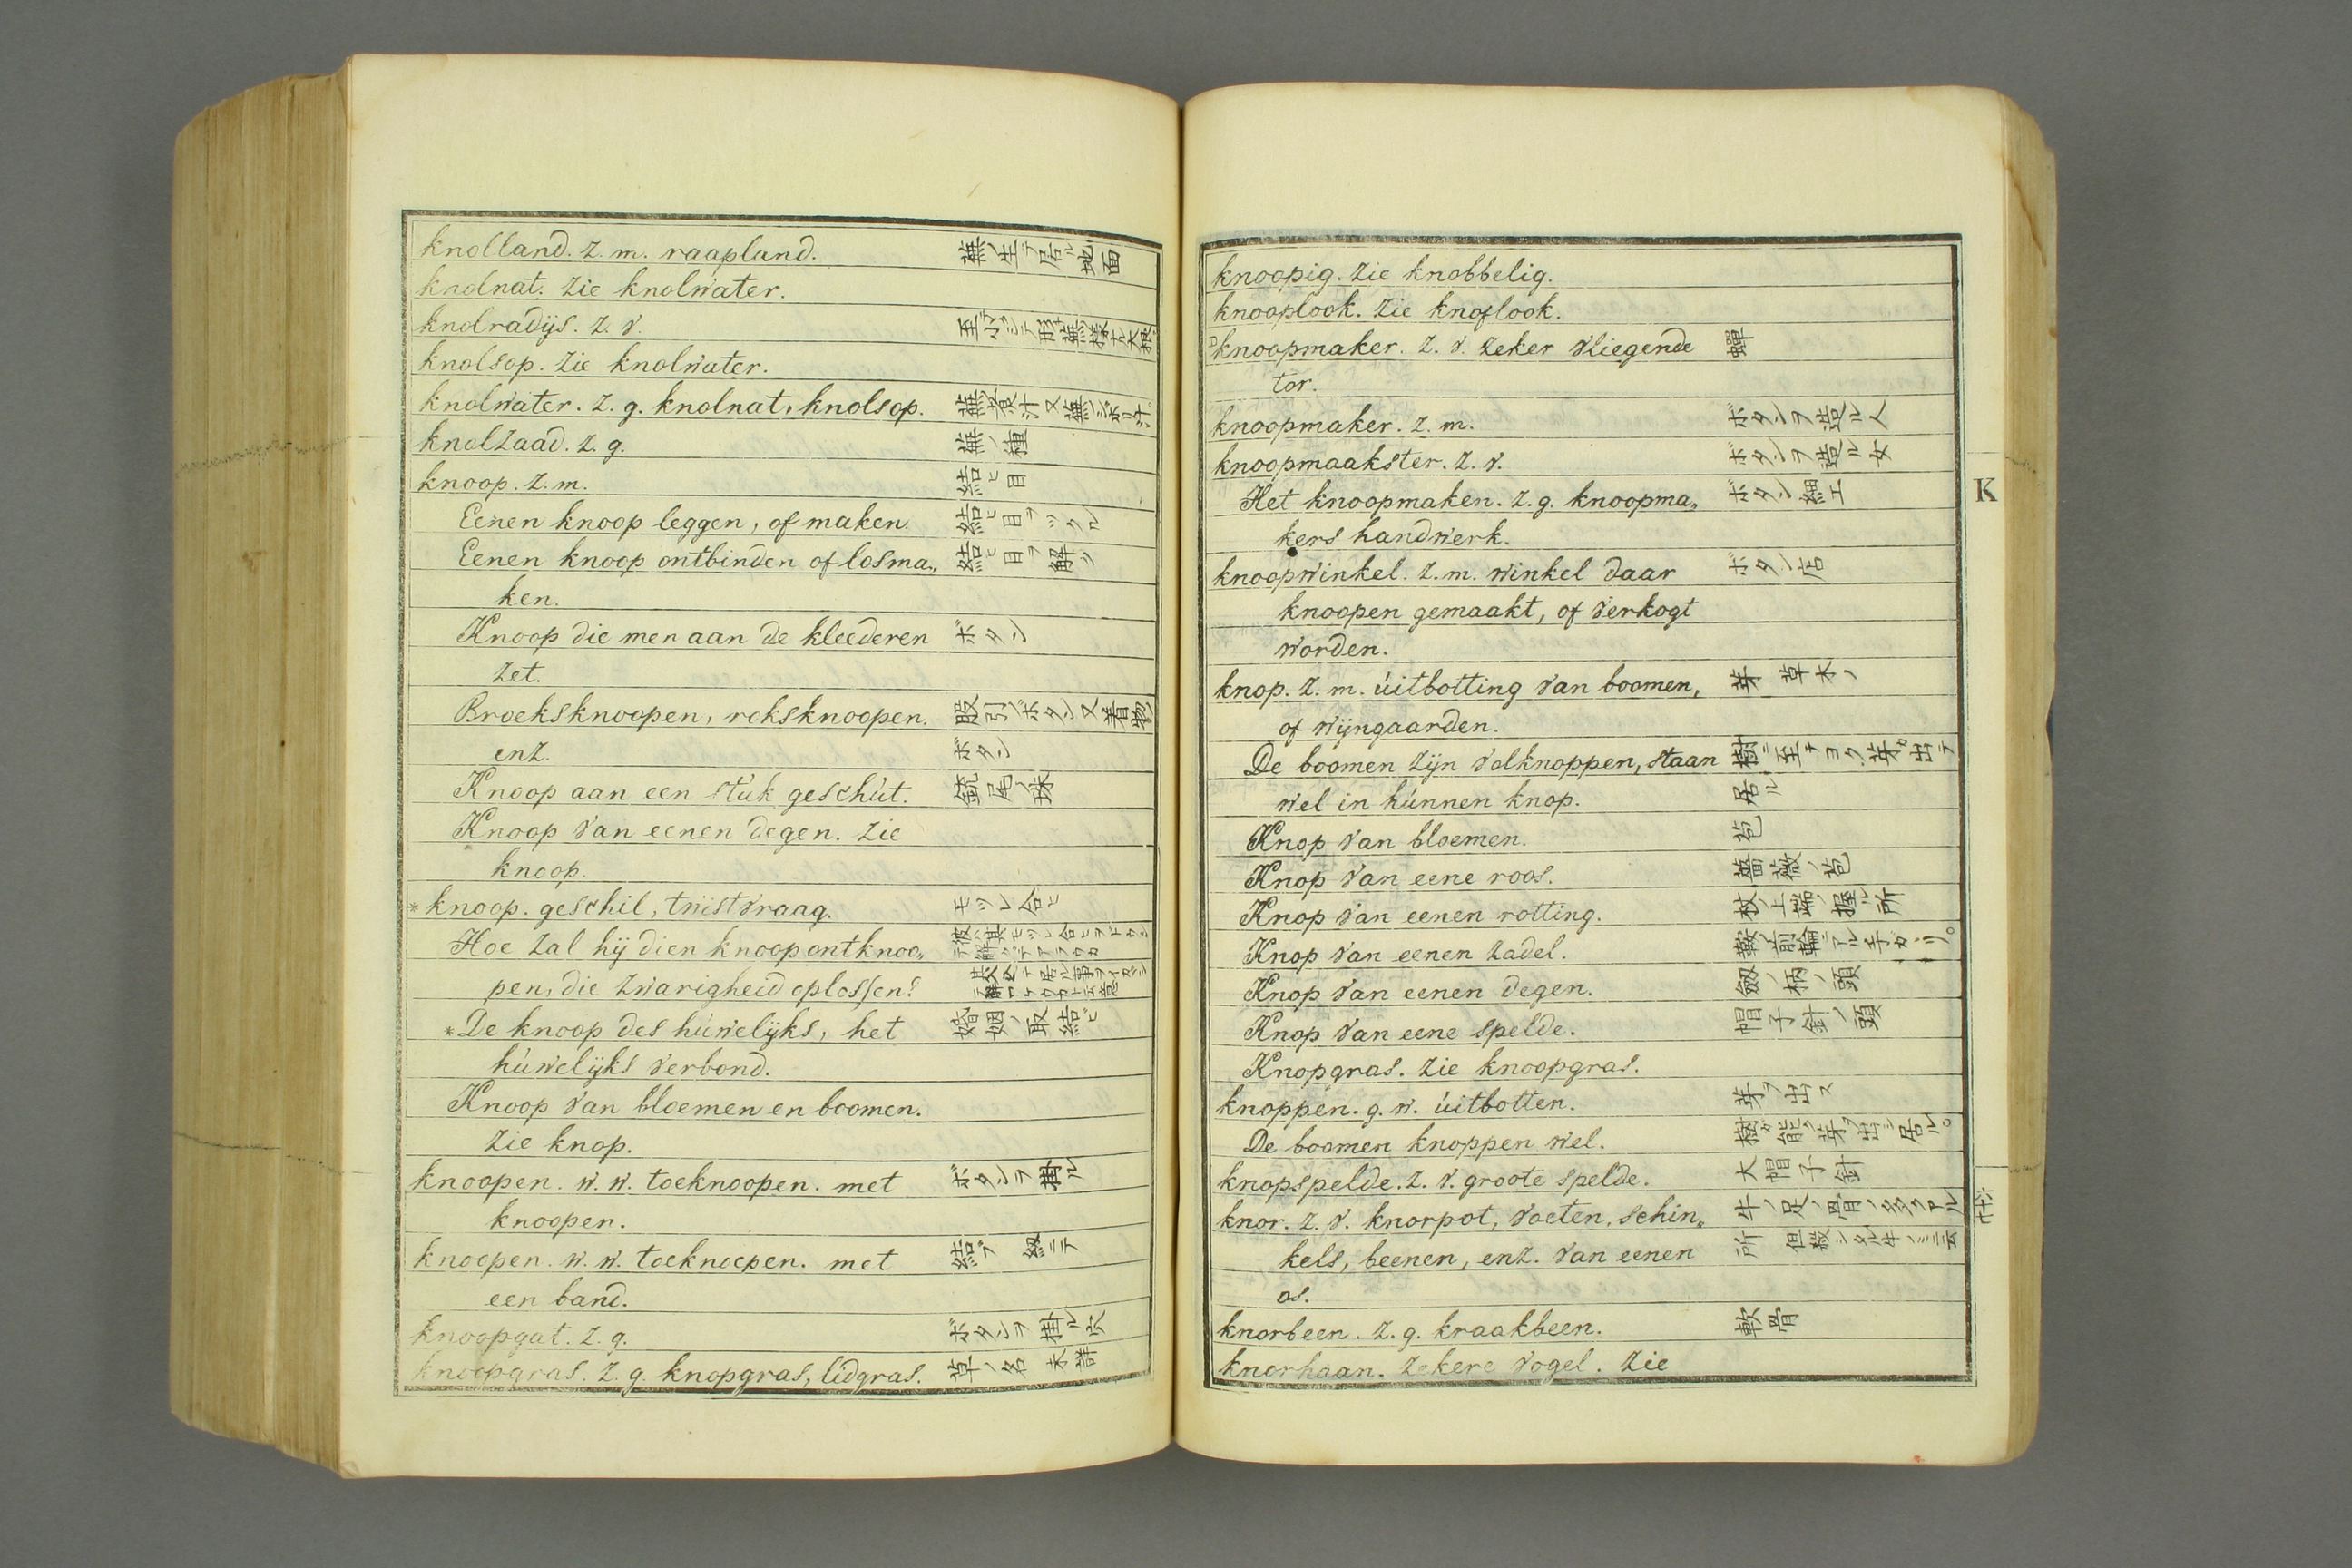 knolland. z. m. raapland. 蕪ノ生テ居ル地面
knolnat. zie knolwater.
knolradijs. z. v.
knolsop. zie knolwater.
knolwater. z. g. knolnat, knolsop.
knolzaad. z. g. 蕪ノ種
knoop. z. m. 結ヒ目
Eenen knoop leggen, of maken. 結ヒ目ヲツクル
Eenen knoop ontbinden of losma„ 結ヒ目ヲ解ク
ken.
Knoop die men aan de kleederen ボタン
zet.
Broeksknoopen, roksknoopen. 股引ノボタン又着物ノ
enz. ボタン
Knoop aan een stuk geschut. 銃尾ノ珠
Knoop van eenen degen. zie
knoop.
*knoop. geschil, twistvraag. モツレ合ヒ
Hoe zal hij dien knoop ontknoo„
pen, die zwarigheid oplossen?
*De knoop des huwelijks, het 婚姻ノ取結ヒ
huwelijks verbond.
Knoop van bloemen en boomen.
zie knop.
knoopen. w. w. toeknoopen. met ボタンヲ掛ル
knoopen.
knoopen. w. w. toeknoopen. met 結ブ 紐ニテ
een band.
knoopgat. z. g. ボタンヲ掛ル穴
knoopgras. z. g. knopgras, lidgras. 草ノ名 未詳
knoopig. zie knobbelig.
knooplook. zie knoflook.
knoopmaker. z. v. zeker vliegende 蟬
tor.
knoopmaker. z. m. ボタンヲ造ル人
knoopmaakster. z. v. ボタンヲ造ル女
Het knoopmaken. z. g. knoopma„ ボタン細工
kers handwerk.
knoopwinkel. z. m. winkel daar ボタン店
knoopen gemaakt, of verkogt
worden.
knop. z. m. uitbotting van boomen, 芽 草木ノ
of wijngaarden.
De boomen zijn vol knoppen, staan 樹ニ至テヨク芽ガ出テ
wel in hunnen knop. 居ル
Knop van bloemen. 苞
Knop van eene roos. 薔薇ノ苞
Knop van eenen rotting. 杖ノ上端ノ握ル所
Knop van eenen zadel.
Knop van eenen degen. 劔ノ柄ノ頭
Knop van eene spelde. 帽子針ノ頭
Knopgras. zie knoopgras.
knoppen. g. w. uitbotten. 芽ヲ出ス
De boomen knoppen wel. 樹ガ能ク芽ヲ出シ居ル。
knopspelde. z. v. groote spelde. 大帽子針
knor. z. v. knorpot, voeten, schin„ 牛ノ足ノ骨ノ多クアル
kels, beenen, enz. van eenen 所 但殺シタル牛ノミニ云
os.
knorbeen. z. g. kraakbeen. 軟骨
knorhaan. zekere vogel. zie
K